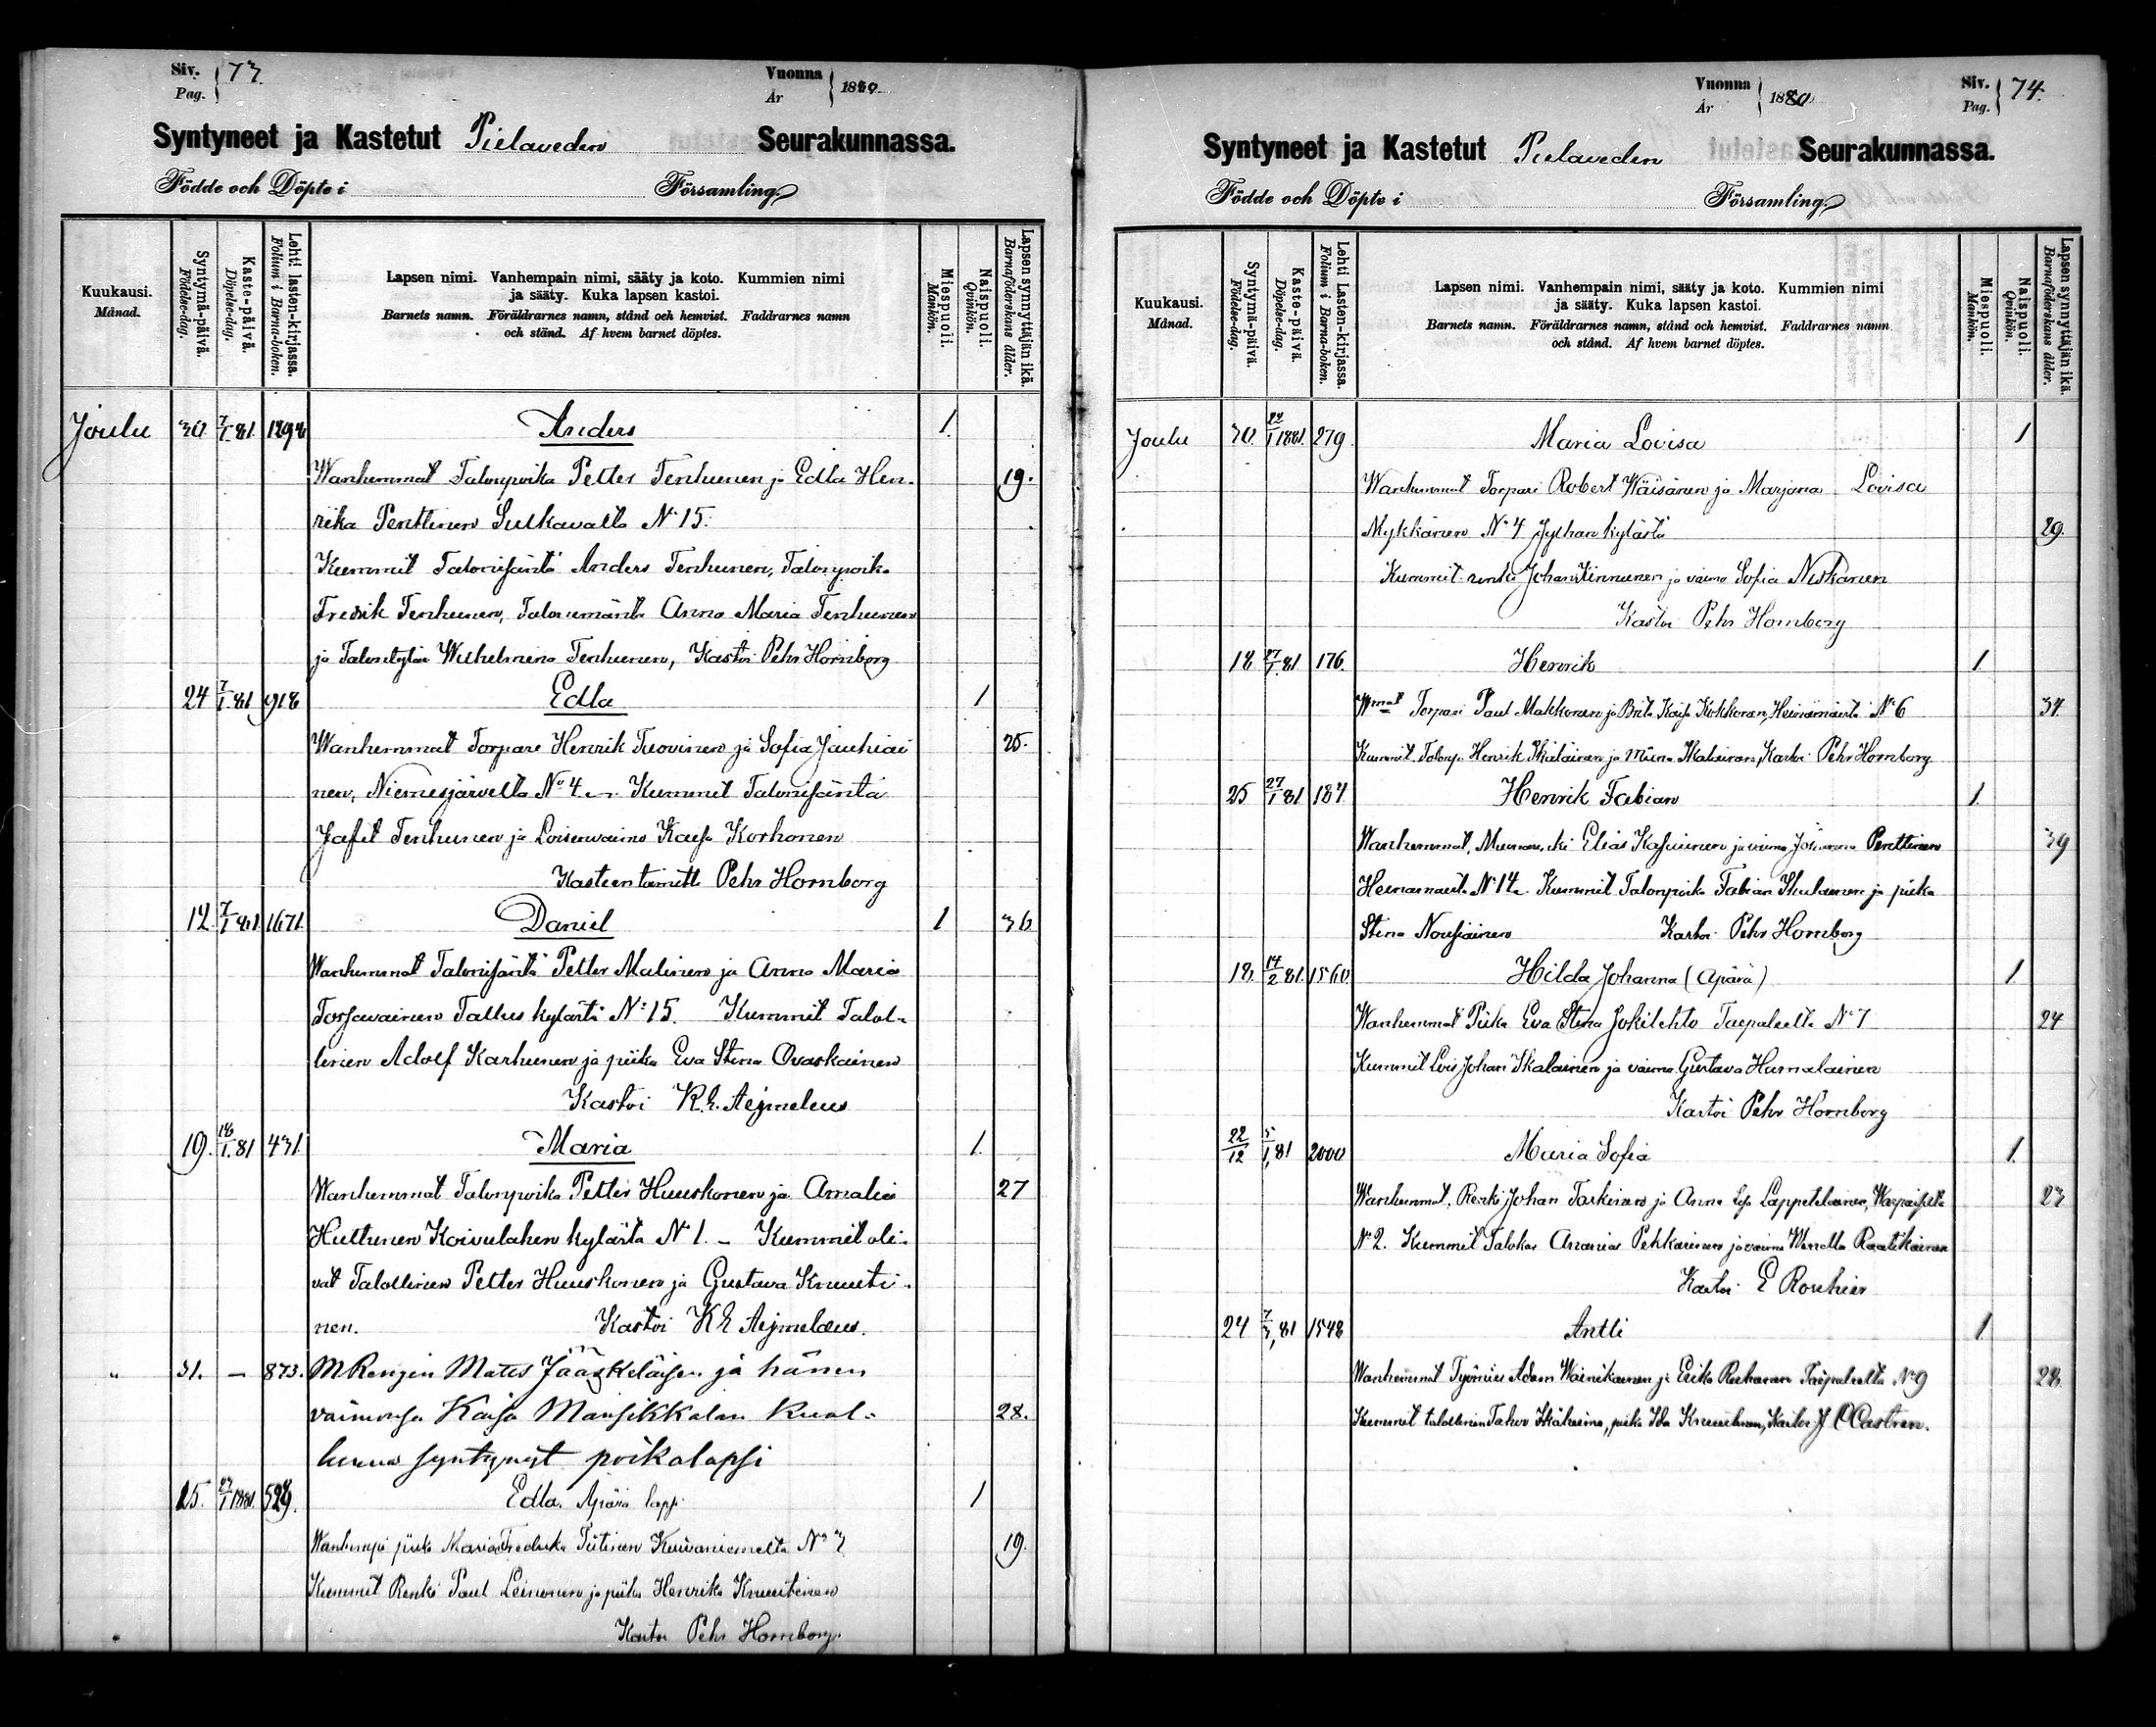 Siv. Pag. 73.
Vuonna År 1880.
Syntyneet ja Kastetut Pielaveden Seurakunnassa.
Födde och Döpte i Församling.
Kuukausi. Månad.
Syntymä-päivä. Födelse-dag.
Kaste-päivä. Döpelse-dag.
Lehti lasten-kirjassa. Folium i Barna-boken.
Lapsen nimi. Vanhempain nimi, sääty ja koto. Kummien nimi
ja sääty. Kuka lapsen kastoi.
Barnets namn. Föräldrarnes namn, stånd och hemvist. Faddrarnes namn
och stånd. Af hvem barnet döptes.
Miespuoli. Mankön.
Naispuoli. Qvinkön.
Lapsen synnyttäjän ikä. Barnaföderskans ålder.
Joulu 30 7/1 81. 1298 Anders 1.
Wanhemmat Talonpoika Petter Tenhunen ja Edla Hen- 19.
rika Penttinen Sulkavalta N:15.
Kummit Talonisäntä Anders Tenhunen, Talonpoika
Fredrik Tenhunen, Talonemäntä Anna Maria Tenhunen
ja Talontytär Wilhelmina Tenhunen, Kastoi Pehr Hornborg
24 7/1 81 918 Edla 1
Wanhemmat Torpare Henrik Tuovinen ja Sofia Jauhiai 25.
nen, Niemisjärveltä No 4. Kummit Talonisäntä
Jafet Tenhunen ja Loisenvaimo Kaisa Korhonen
Kasteen toimitti Pehr Hornborg
12. 7/1 81. 1671. Daniel 1 36
Wanhemmat Talonisäntä Petter Malinen ja Anna Maria
Torsavainen Tallus kylästä N:15. Kummit Talol-
linen Adolf Karhunen ja piika Eva Stina Ovaskainen
Kastoi K. E. Aejmelæus
19. 18/1. 81 431. Maria 1.
Wanhemmat Talonpoika Petter Huuskonen ja Amalia 27
Huttunen Koivulahen kylästä N 1. – Kummit oli-
vat Talollinen Petter Huuskonen ja Gustava Knuuti-
nen. Kastoi K E Aejmelæus.
" 31. – 873. M Rengin Mats Jääskeläisen ja hänen
vaimonsa Kaisa Mansikkalan kuol- 28.
luna syntynyt poikalapsi
25. 1881. 529. Edla. Äpärä lapsi 1
Wanhempi piika Maria Fredrika Tiitinen Kuivaniemeltä No 19.
Kummit Renki Paul Leinonen ja piika Henrika Knuutinen
Kastoi Pehr Hornborg.
Vuonna År 1880
Siv. Pag. 74.
Syntyneet ja Kastetut Pielaveden Seurakunnassa.
Födde och Döpte i Församling.
Kuukausi. Månad.
Syntymä-päivä. Födelse-dag.
Kaste-päivä. Döpelse-dag.
Lehti Lasten-kirjassa. Folium i Barna-boken.
Lapsen nimi. Vanhempain nimi, sääty ja koto. Kummien nimi
ja sääty. Kuka lapsen kastoi.
Barnets namn. Föräldrarnes namn, stånd och hemvist. Faddrarnes namn
och stånd. Af hvem barnet döptes.
Miespuoli. Mankön.
Naispuoli. Qvinkön.
Lapsen synnyttäjän ikä. Barnaföderskans ålder.
Joulu 30. 22/1 1881. 279. Maria Lovisa 1
Wanhemmat Torpari Robert Wäisänen ja Marjana Lovisa
Mykkänen No 4 Jylhän kylästä 29.
Kummit renki Johan Kinnunen ja vaimo Sofia Niskanen
Kastoi Pehr Hornborg
18 27/1. 81 176. Henrik 1.
Wmat Torpari Paul Makkonen ja Brita Kaisa Kokkonen, Heinämäestä No 6 34
Kummit Talonp. Henrik ja Miina Kastoi Pehr Hornborg
25 27/1 81 187. Henrik Fabian 1.
Wanhemmat, Elias ja vaimo Johanna Penttinen 39
Heinämäestä N:14. Kummit Talonpoika Fabian ja piika
Stina Nousiainen Kastoi Pehr Hornborg
18. 14/2 81. 1560. Hilda Johanna (Äpärä) 1.
Wanhemmat Piika Eva Stina Jokilehto Taipaleelta No 7 24
Kummit Lois Johan ja vaimo Gustava Humalainen
Kastoi Pehr Hornborg
22/12 5/1, 81 2000 Maria Sofia 1.
Wanhemmat. Renki Johan Tarkinen ja Anna Lappeteläinen, 23
No 2. Kummit Ananias Pekkarinen ja vaimo Raatikainen
Kastoi E Rouhier
24 7/3, 81 1548 Antti 1
Wanhemmat Työmies Adam Wainikainen ja Erika Taipaleelta No 9 28.
Kummit talollinen piika Ida Kastoi J O Castren.